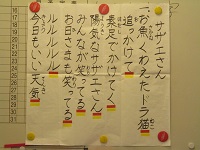 サザエさん
一、お魚くわえたドラ猫
追っかけて
裸足でかけてく
陽気なサザエさん
みんなが笑ってる
お日さまも笑ってる
ルルルルルル
今日もいい天気